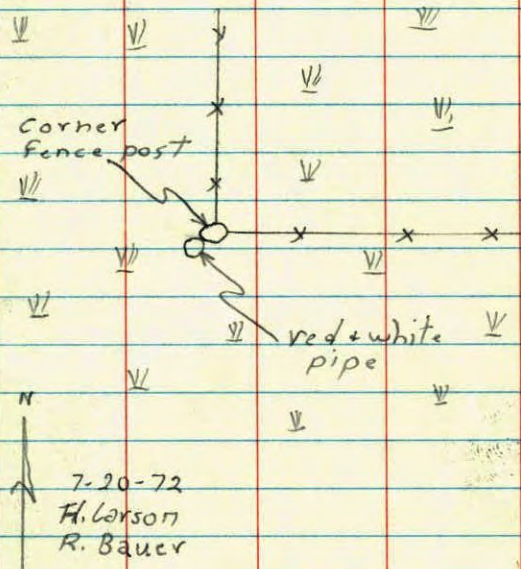 Corner
fence post
red & white
pipe
N
7-20-72
H. Carson
R. Bauer